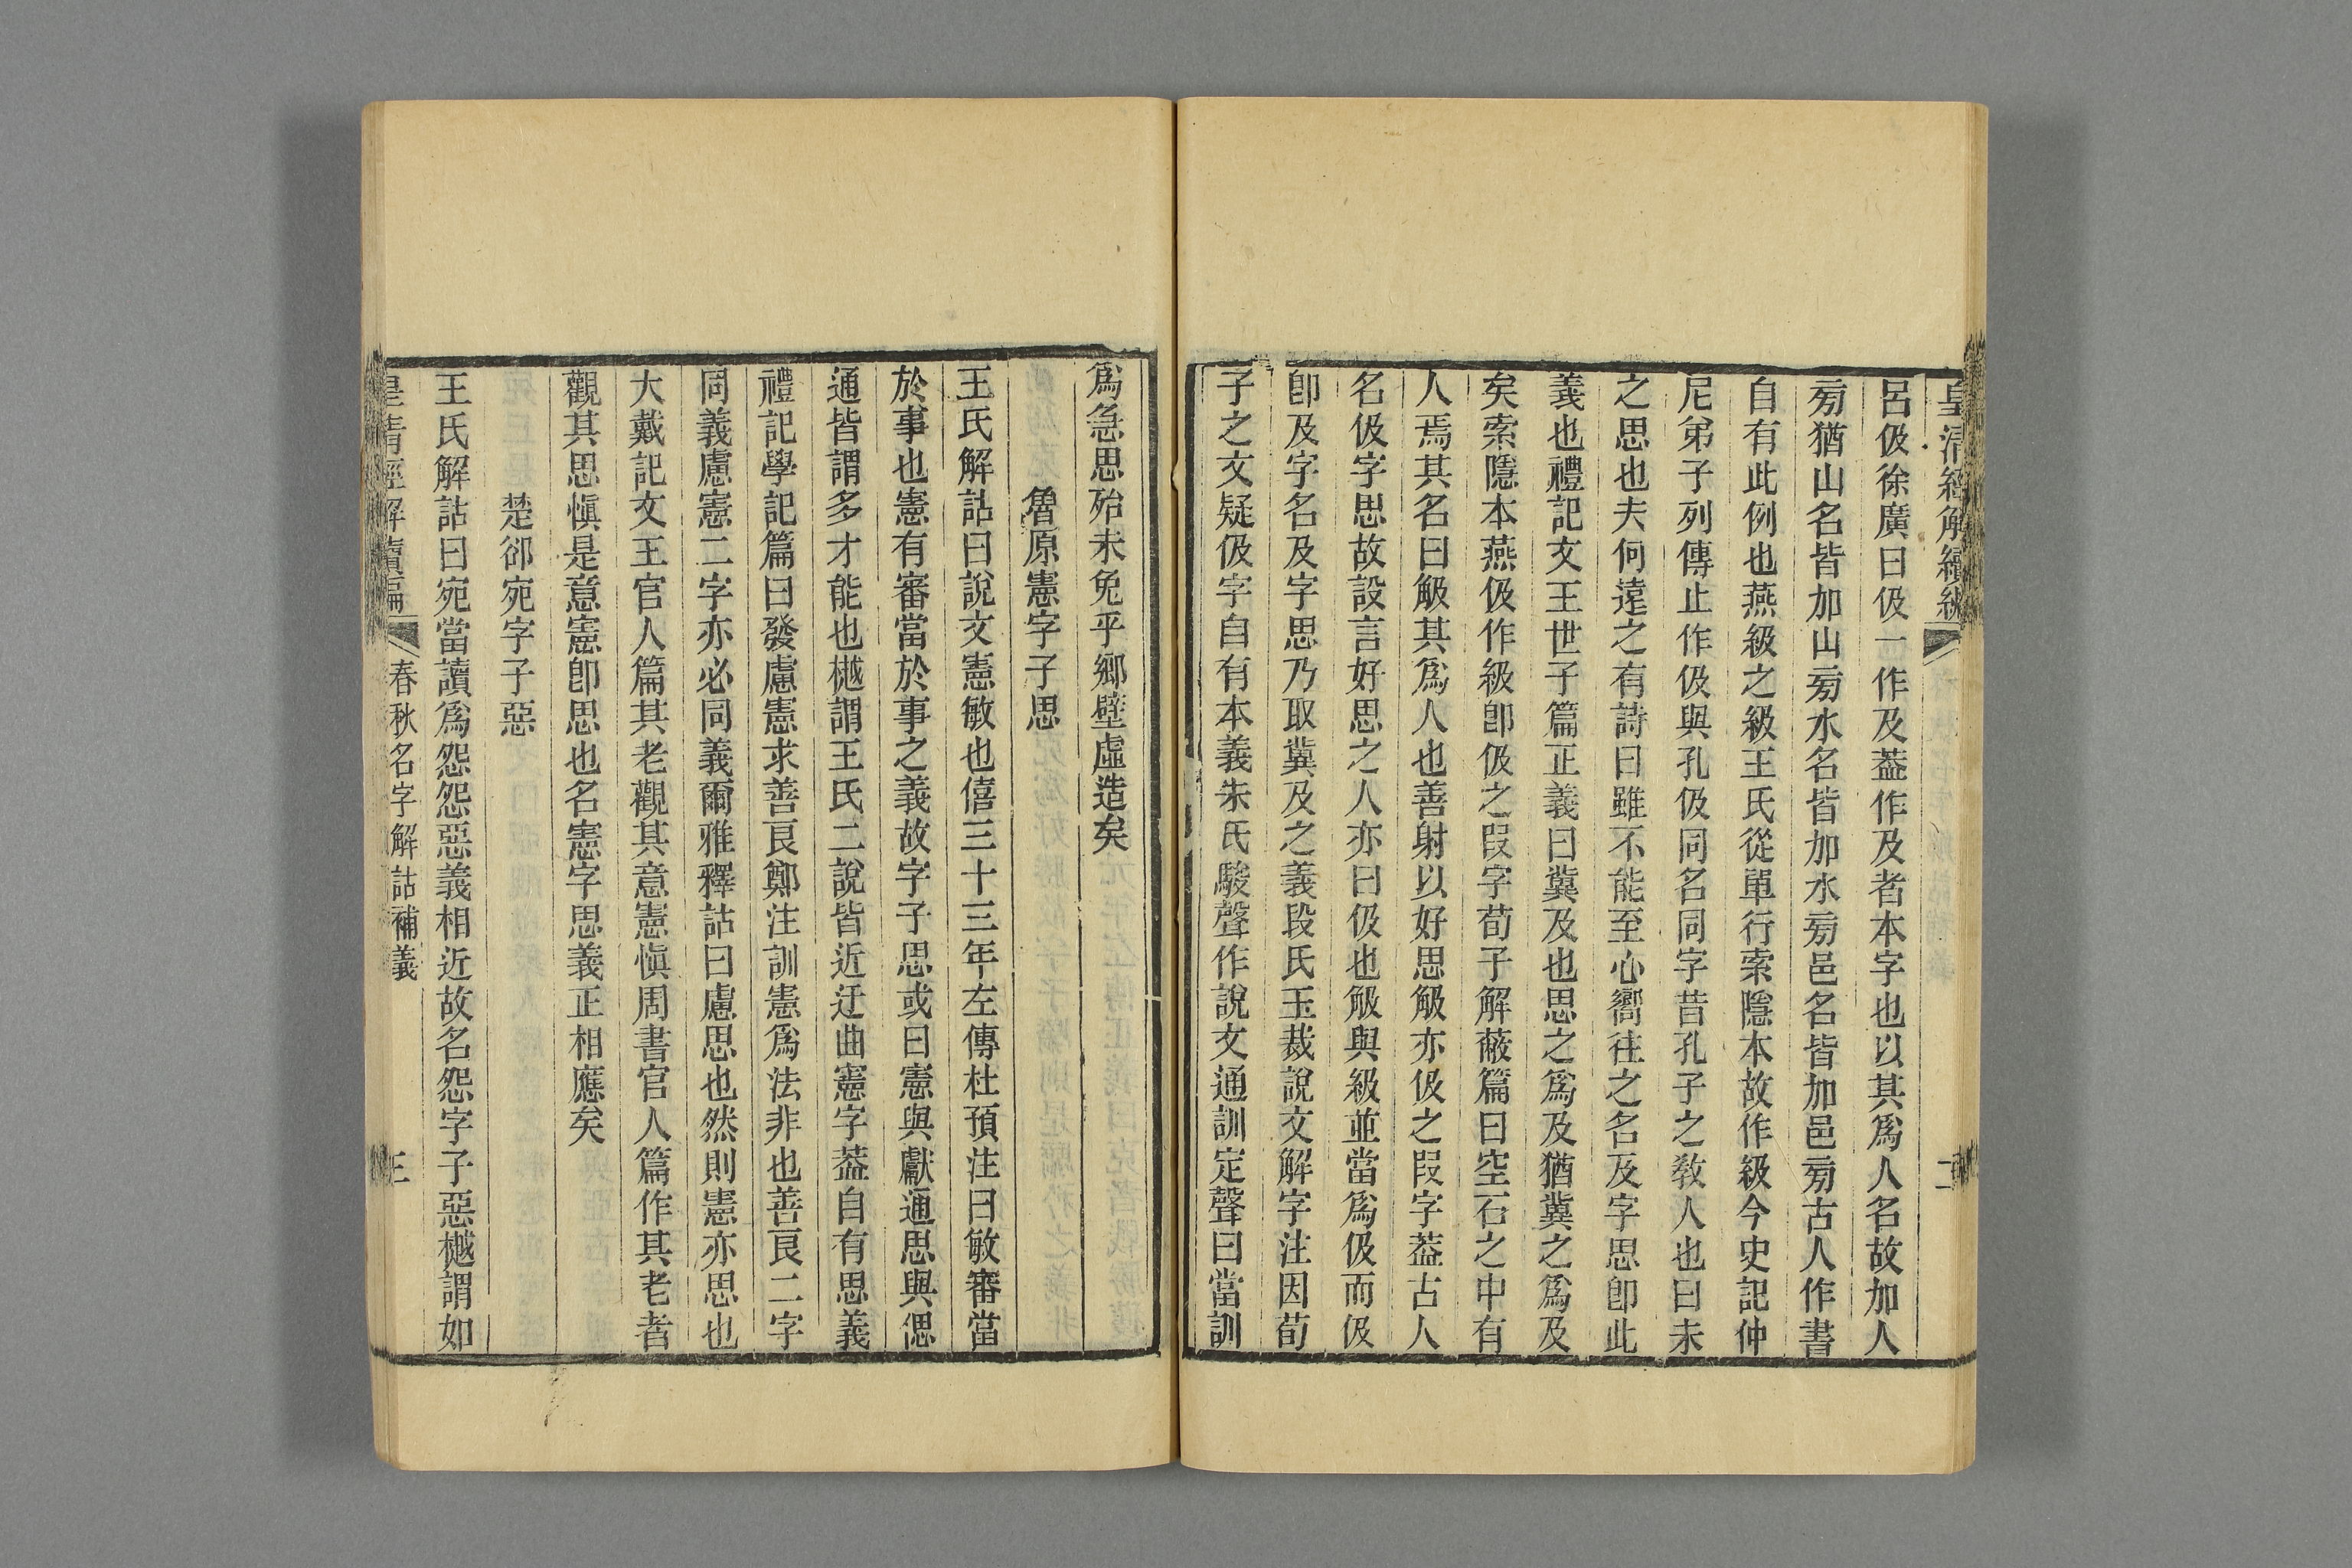 皇清經解續編
二
呂伋徐廣曰伋一作及葢作及者本字也以其爲人名故加人
㫄猶山名皆加山㫄水名皆加水㫄邑名皆加邑㫄古人作書
自有此例也燕級之級王氏從單行索隱本故作級今史記仲
尼弟子列傳止作伋與孔伋同名同字昔孔子之敎人也曰未
之思也夫何遠之有詩曰雖不能至心嚮往之名及字思卽此
義也禮記文王世子篇正義曰冀及也思之爲及猶冀之爲及
矣索隱本燕伋作級卽伋之叚字荀子解蔽篇曰空石之中有
人焉其名曰觙其爲人也善射以好思觙亦伋之叚字葢古人
名伋字思故設言好思之人亦曰伋也觙與級並當爲伋而伋
卽及字名及字思乃取冀及之義段氏玉裁說文解字注因荀
子之文疑伋字自有本義朱氏駿聲作說文通訓定聲曰當訓
爲急思殆未免乎鄉壁虛造矣
魯原憲字子思
王氏解詁曰說文憲敏也僖三十三年左傳杜預注曰敏審當
於事也憲有審當於事之義故字子思或曰憲與獻通思與偲
通皆謂多才能也樾謂王氏二說皆近迂曲憲字葢自有思義
禮記學記篇曰發慮憲求善良鄭注訓憲爲法非也善良二字
同義慮憲二字亦必同義爾雅釋詁曰慮思也然則憲亦思也
大戴記文王官人篇其老觀其意憲愼周書官人篇作其老者
觀其思愼是意憲卽思也名憲字思義正相應矣
楚郤宛字子惡
王氏解詁曰宛當讀爲怨怨惡義相近故名怨字子惡樾謂如
皇清經解續編
春秋名字解詁補義
三